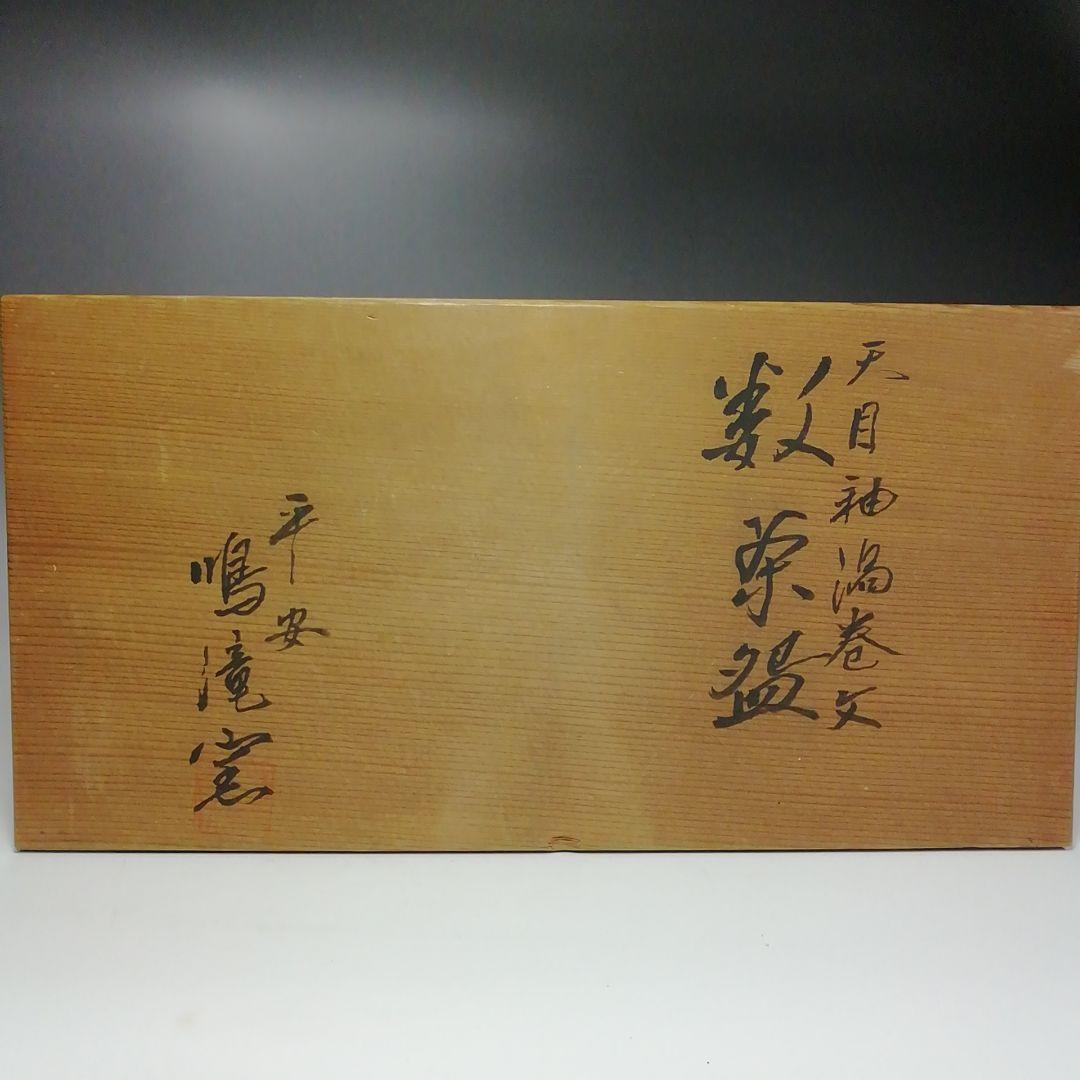 天目袖渦巻文
数茶盌
平安
鳴滝窯